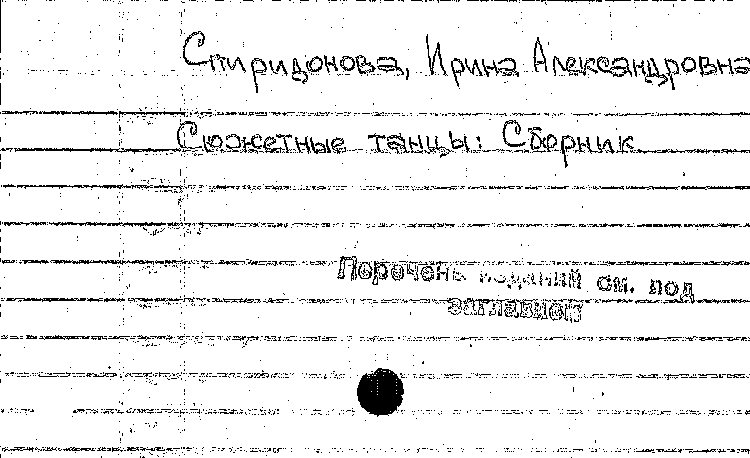 Спиридонова, Ирина Александровна
Сюжетные танцы: Сборник
Перечень изданий см. под
заглавием